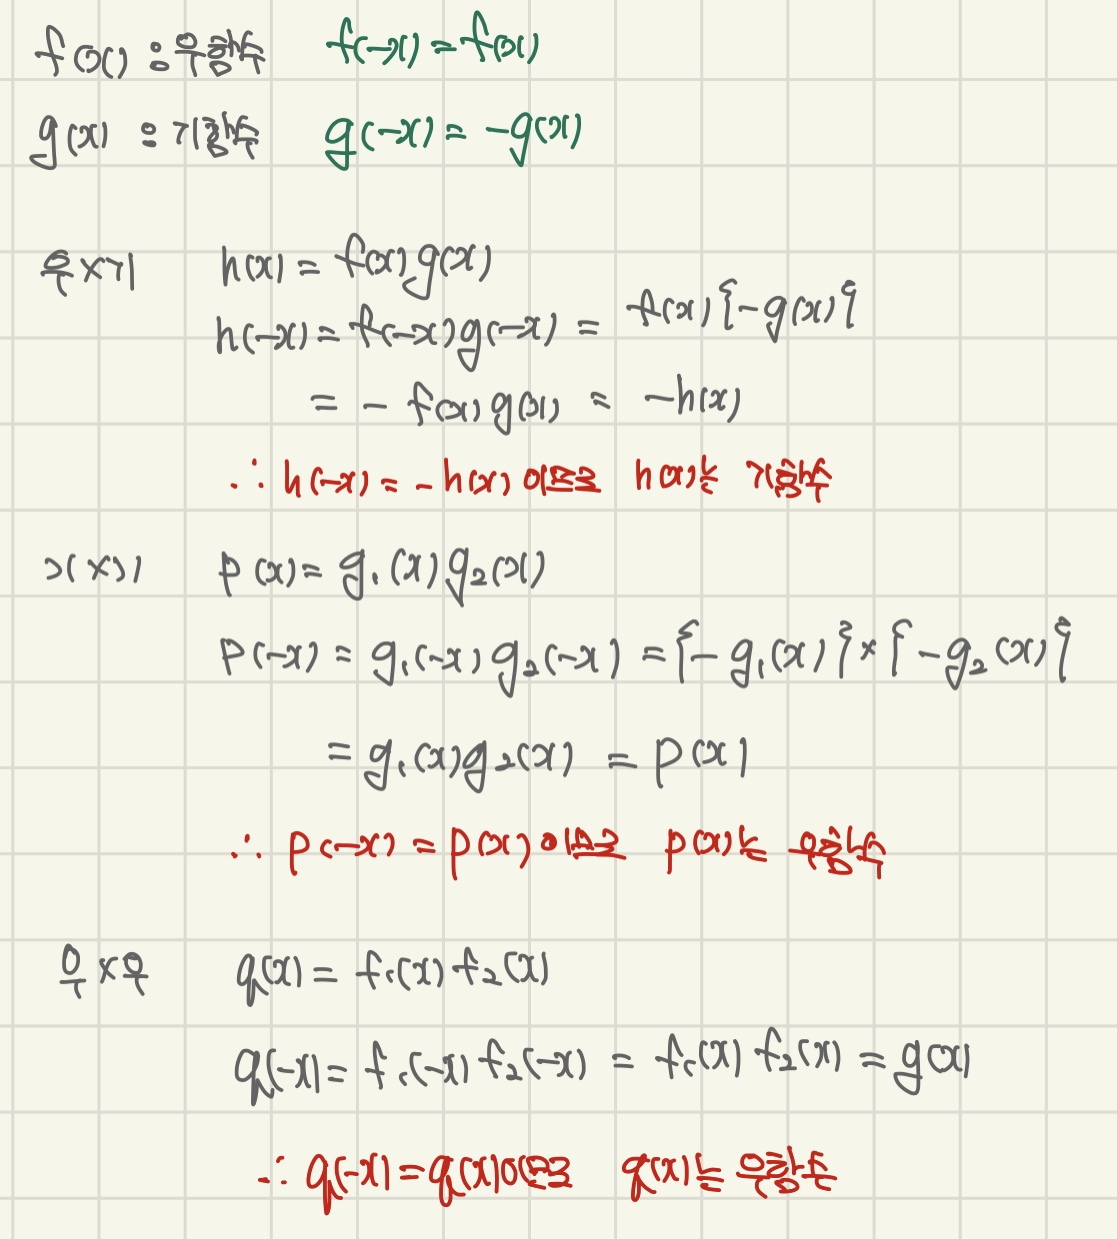 f(x) : 우함수 f(-x) = f(x)
g(x) : 기함수 g(-x) = -g(x)
우×기 h(x) = f(x)g(x)
h(-x) = f(-x)g(-x) = f(x){-g(x)}
= - f(x)g(x) = -h(x)
∴ h(-x) = -h(x) 이므로 h(x)는 기함수
기×기 p(x) = g₁(x)g₂(x)
p(-x) = g₁(-x)g₂(-x) = {-g₁(x)}×{-g₂(x)}
= g₁(x)g₂(x) = p(x)
∴ p(-x) = p(x) 이므로 p(x)는 우함수
우×우 q(x) = f₁(x) f₂(x)
q(-x) = f₁(-x) f₂(-x) = f₁(x) f₂(x) = g(x)
∴ q(-x) = q(x)이므로 q(x)는 우함수